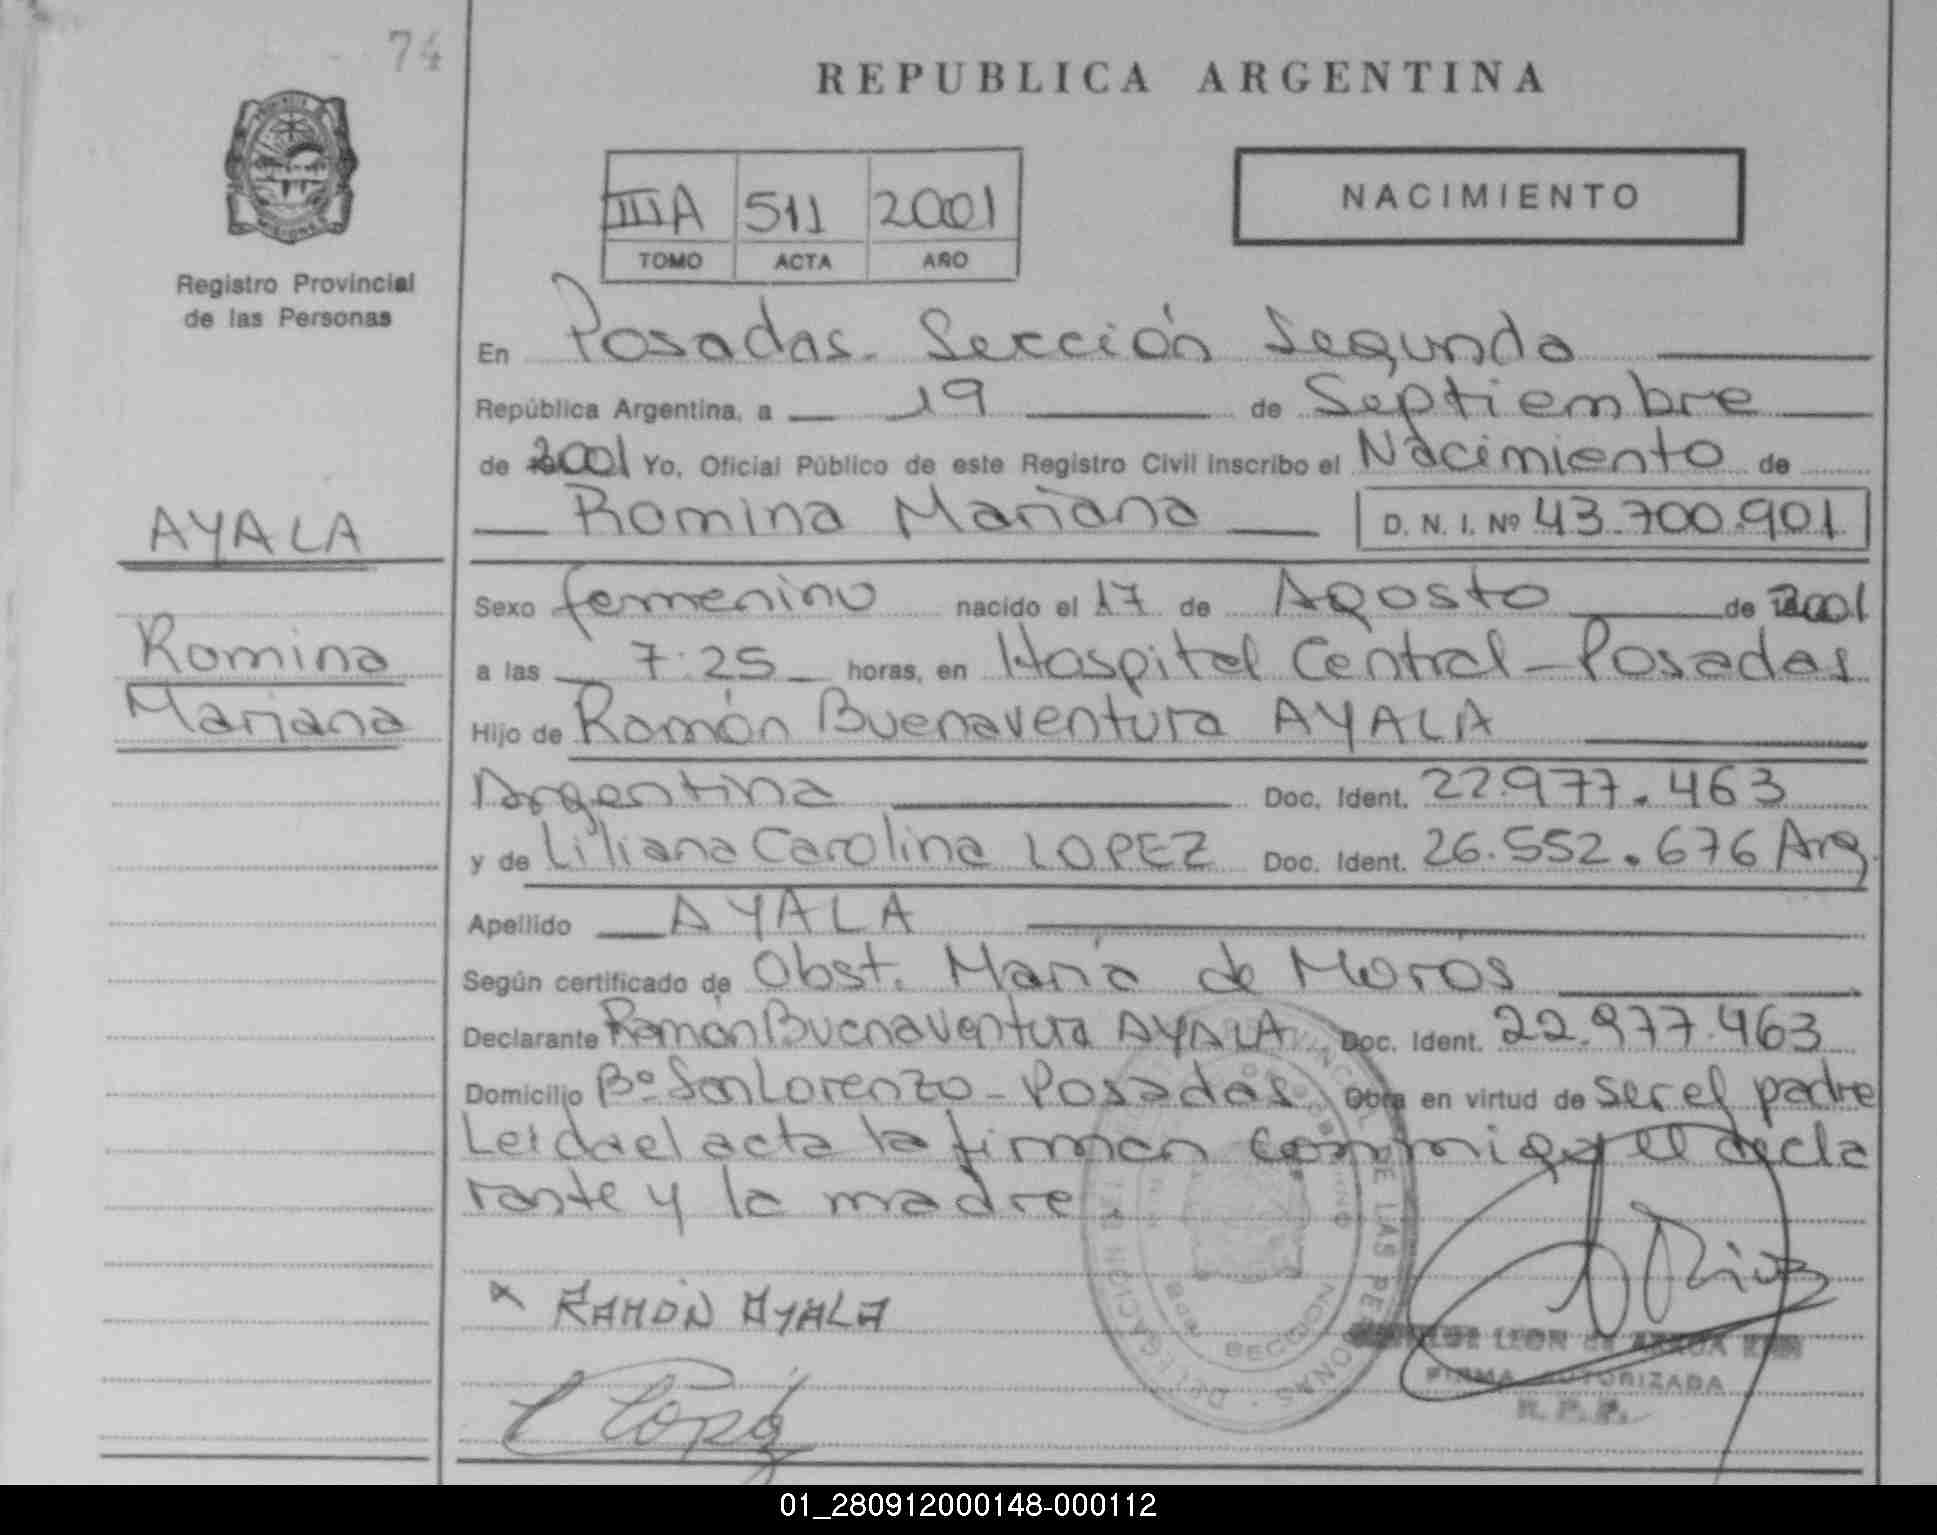 74
REPUBLICA ARGENTINA
NACIMIENTO
IIIA 511 2001
TOMO ACTA AÑO
Registro Provincial
de las Personas
En Posadas. Sección Segunda
República Argentina, a 19 de Septiembre
de 2001 Yo, Oficial Público de este Registro Civil inscribo el Nacimiento de
Romina Mariana D. N. I. Nº 43.700.901
AYALA
Romina
Mariana
Sexo femenino nacido el 17 de Agosto de 2001
a las 7:25 horas, en Hospital Central - Posadas
Hijo de Ramón Buenaventura AYALA
Argentina Doc. Ident. 22.977.463
y de Liliana Carolina LOPEZ Doc. Ident. 26.552.676 Arg.
Apellido AYALA
Según certificado de Obst. María de Moros
Declarante Ramón Buenaventura AYALA Doc. Ident. 22.977.463
Domicilio Bº San Lorenzo - Posadas Obra en virtud de ser el padre
Leida el acta la firman conmigo el decla
rante y la madre
RAMÓN AYALA
LEON de
FIRMA AUTORIZADA
R. P. P.
01_280912000148-000112